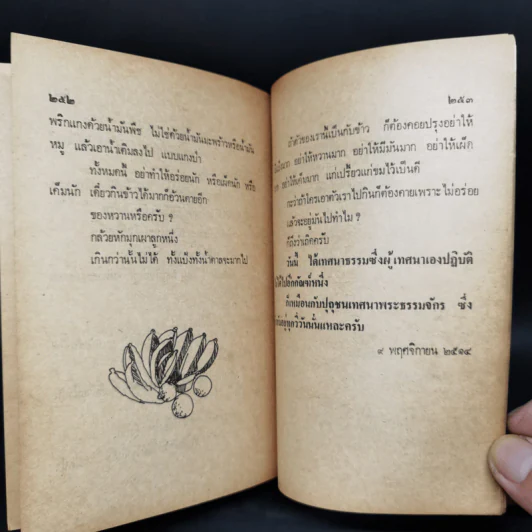 ๒๕๒
พริกแกงด้วยน้ำมันพืช ไม่ใช่ด้วยน้ำมันมะพร้าวหรือน้ำมัน
หมู แล้วเอาน้ำเติมลงไป แบบแกงป่า
ทั้งหมดนี้ อย่าทำให้อร่อยนัก หรือเผ็ดนัก หรือ
เค็มนัก เดี๋ยวกินข้าวได้มากก็อ้วนตายอีก
ของหวานหรือครับ ?
กล้วยหักมุกเผาลูกหนึ่ง
เกินกว่านั้นไม่ได้ ทั้งแป้งทั้งน้ำตาลจะมากไป
๒๕๓
ถ้าตัวของเรานี้เป็นกับข้าว ก็ต้องคอยปรุงอย่าให้
อย่าให้หวานมาก อย่าให้มีมันมาก อย่าให้เผ็ด
อย่าให้เค็มมาก แต่เปรี้ยวแก่ขมไว้เป็นดี
กะว่าถ้าใครเอาตัวเราไปกินก็ต้องคายเพราะไม่อร่อย
แล้วจะอยู่มันไปทำไม ?
ก็ถึงว่าเถิดครับ
วันนี้ ได้เทศนาธรรมซึ่งผู้เทศนาเองปฏิบัติ
ไม่ได้ไปอีกกัณฑ์หนึ่ง
ก็เหมือนกับปุถุชนเทศนาพระธรรมจักร ซึ่ง
อยู่ทุกวี่วันนั่นแหละครับ
๙ พฤศจิกายน ๒๕๑๔